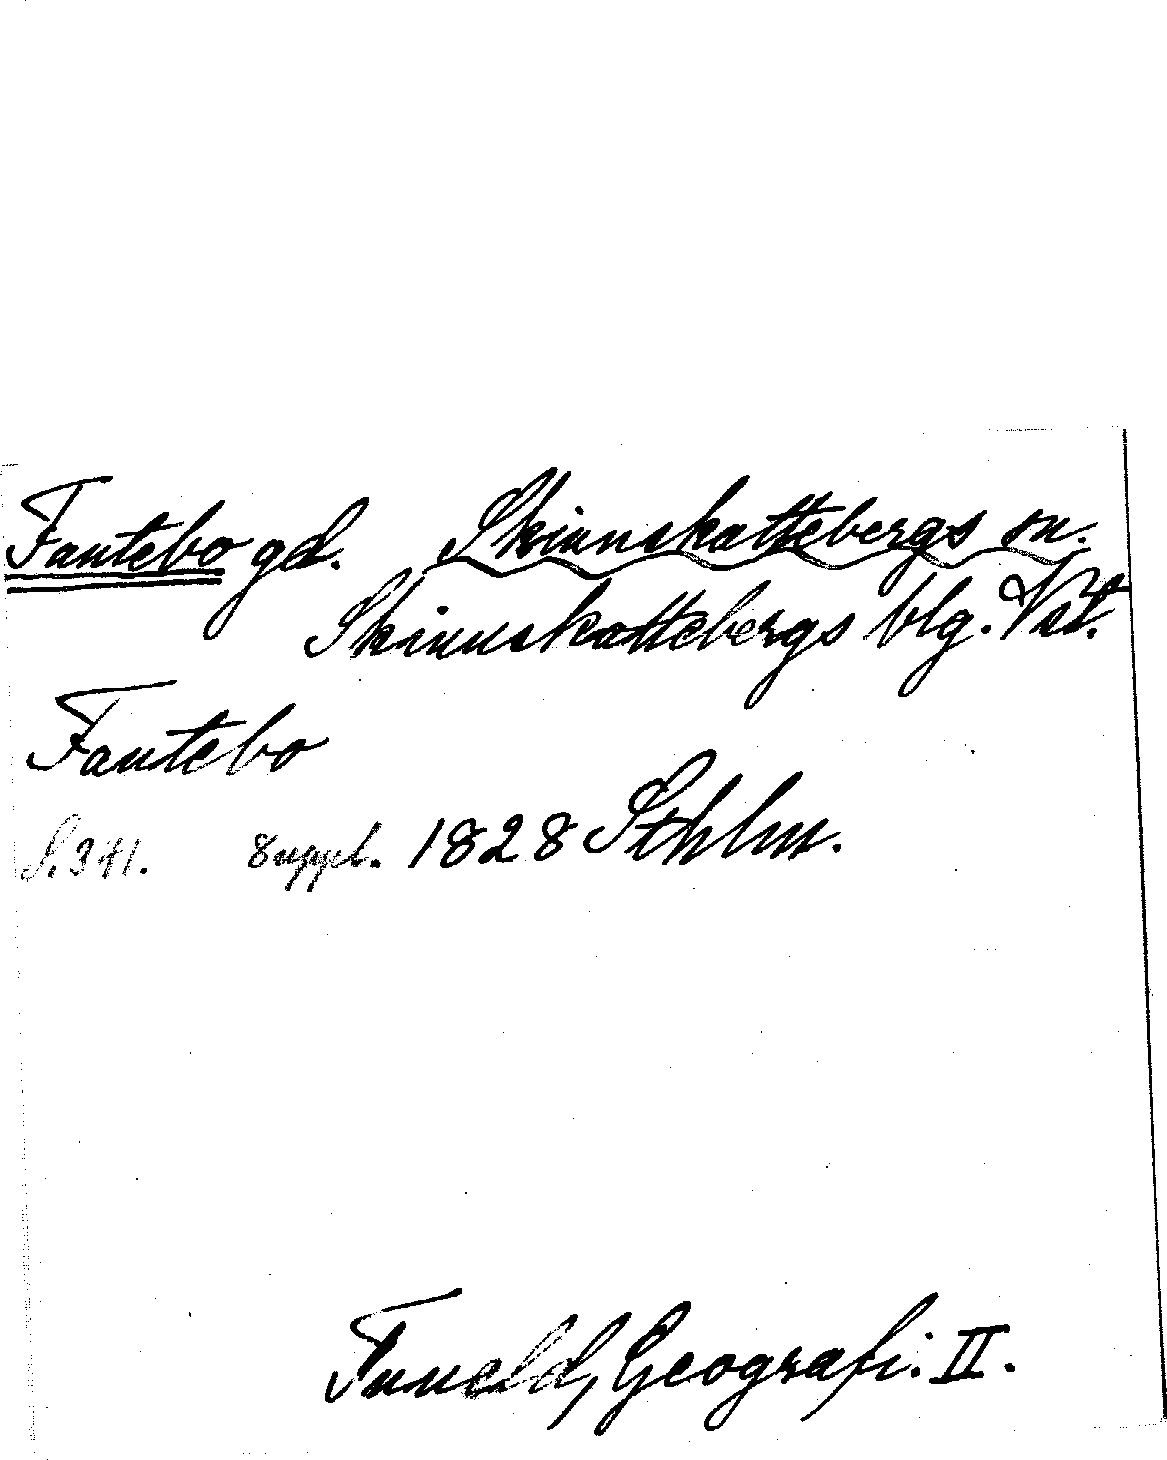 Fantebo gd. Skinnskattebergs sn.
Skinnskattebergs blg. Vst.
Fantebo
S. 341. Suppl. 1828 Sthlm.
Tuneld, Geografi. II.